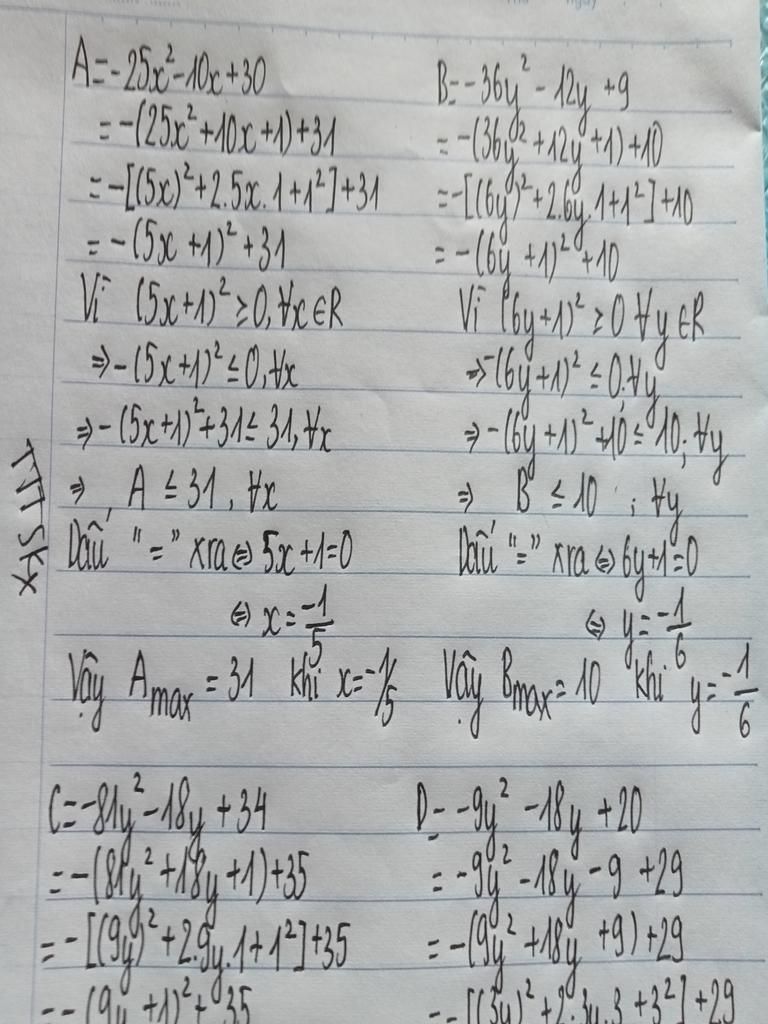 A=-25x²-10x+30
=-(25x²+10x+1)+31
=-[(5x)²+2.5x.1+1²]+31
=-(5x+1)²+31
Vì (5x+1)²≥0,∀x∈R
⇒-(5x+1)²≤0,∀x
⇒-(5x+1)²+31≤31,∀x
⇒ A≤31,∀x
Dấu "=" xra⇔5x+1=0
⇔x=-1/5
Vậy Amax=31 khi x=-1/5
B=-36y²-12y+9
=-(36y²+12y+1)+10
=-[(6y)²+2.6y.1+1²]+10
=-(6y+1)²+10
Vì (6y+1)²≥0 ∀y∈R
⇒-(6y+1)²≤0;∀y
⇒-(6y+1)²+10≤10;∀y
⇒ B≤10 ;∀y
Dấu "=" xra⇔6y+1=0
⇔y=-1/6
Vậy Bmax=10 khi y=-1/6
C=-81y²-18y+34
=-(81y²+18y+1)+35
=-[(9y)²+2.9y.1+1²]+35
=-(9y+1)²+35
D=-9y²-18y+20
=-9y²-18y-9+29
=-(9y²+18y+9)+29
=-[(3y)²+2.3y.3+3²]+29